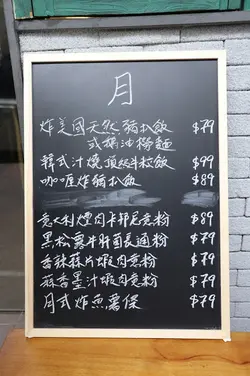 月
炸美國天然豬扒飯 $79
或橘油撈麵
韓式汁燒頂級牛枚飯 $99
咖喱炸豬扒飯 $89
意大利煙肉卡邦尼意粉 $89
黑松露牛肝菌長通粉 $79
香辣蒜片蝦肉意粉 $79
蒜香墨汁蝦肉意粉 $79
月式炸魚薯條 $79